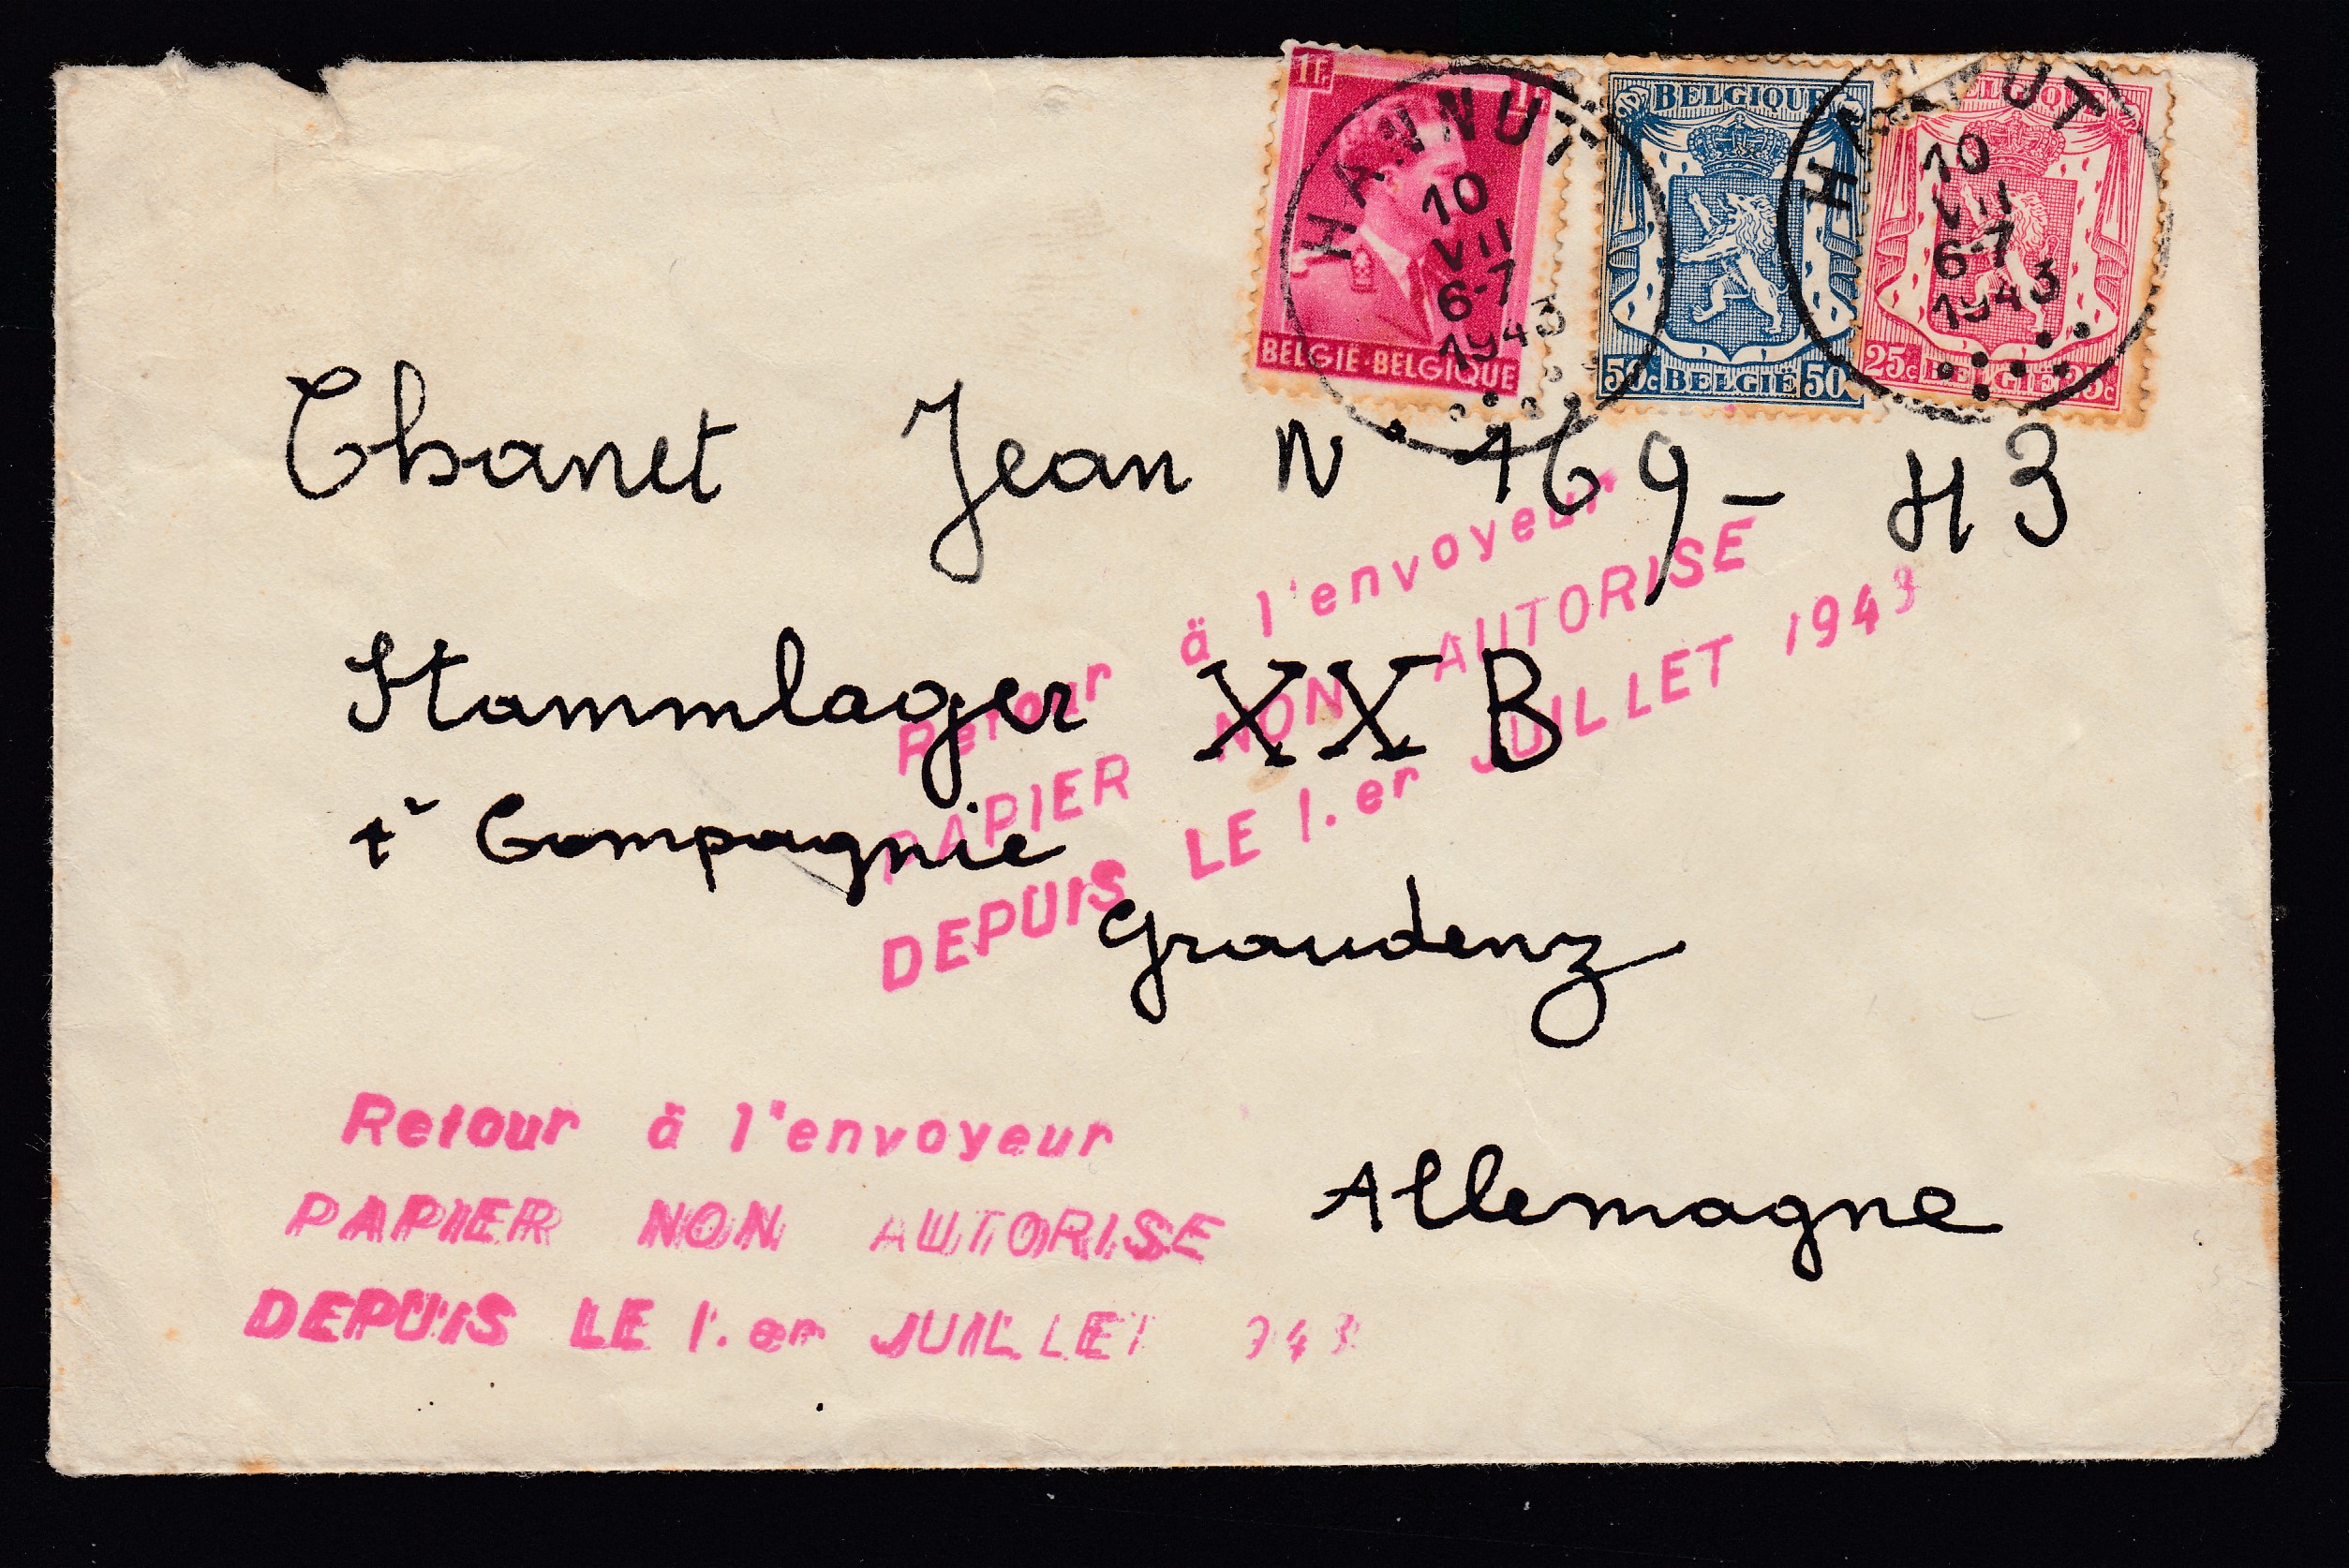 1F.
BELGIE-BELGIQUE
BELGIQUE
50c BELGIË 50c
BELGIQUE
25c BELGIË 25c
HANNUT
10
VII
6-7
1943
HANNUT
10
VII
6-7
1943
Thanet Jean N° 169 - H3
Stammlager XX B
Compagnie
Graudenz
Allemagne
Retour à l'envoyeur
PAPIER NON AUTORISE
DEPUIS LE 1.er JUILLET 1943
Retour à l'envoyeur
PAPIER NON AUTORISE
DEPUIS LE 1.er JUILLET 943